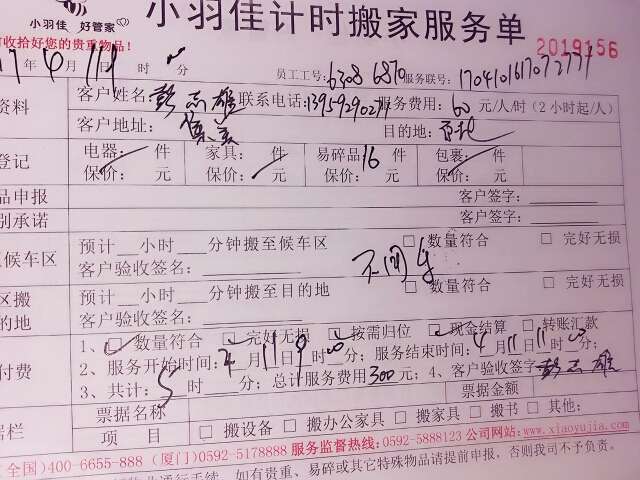 小羽佳 好管家 小羽佳计时搬家服务单
时收拾好您的贵重物品! 2019156
17年4月11日 时 分 员工工号:6308 6870 服务联号:
资料 客户姓名:彭志雄 联系电话:13959290277 服务费用:60元/人/时(2小时起/人)
客户地址: 目的地:
登记 电器: 件 家具: 件 易碎品16件 包裹: 件
保价: 元 保价: 元 保价: 元 保价: 元
品申报 客户签字:
别承诺 客户签字:
候车区 预计 小时 分钟搬至候车区 数量符合 完好无损
客户验收签名:
区搬 预计 小时 分钟搬至目的地 数量符合 完好无损
的地 客户验收签名:
1、 数量符合 完好无损 按需归位 现金结算 转账汇款
付费 2、服务开始时间:4月11日9时00分; 服务结束时间:4月11日 时 分;
3、共计:5时 分; 总计服务费用300元; 4、客户验收签字彭志雄
票据名称 票据金额
栏 项 目 搬设备 搬办公家具 搬家具 搬书 其他:
(全国)400-6655-888 (厦门)0592-5178888 服务监督热线:0592-5888123 公司网站:www.xiaoyujia.com
如有贵重、易碎或其它特殊物品请提前申报,否则我司不予负责。